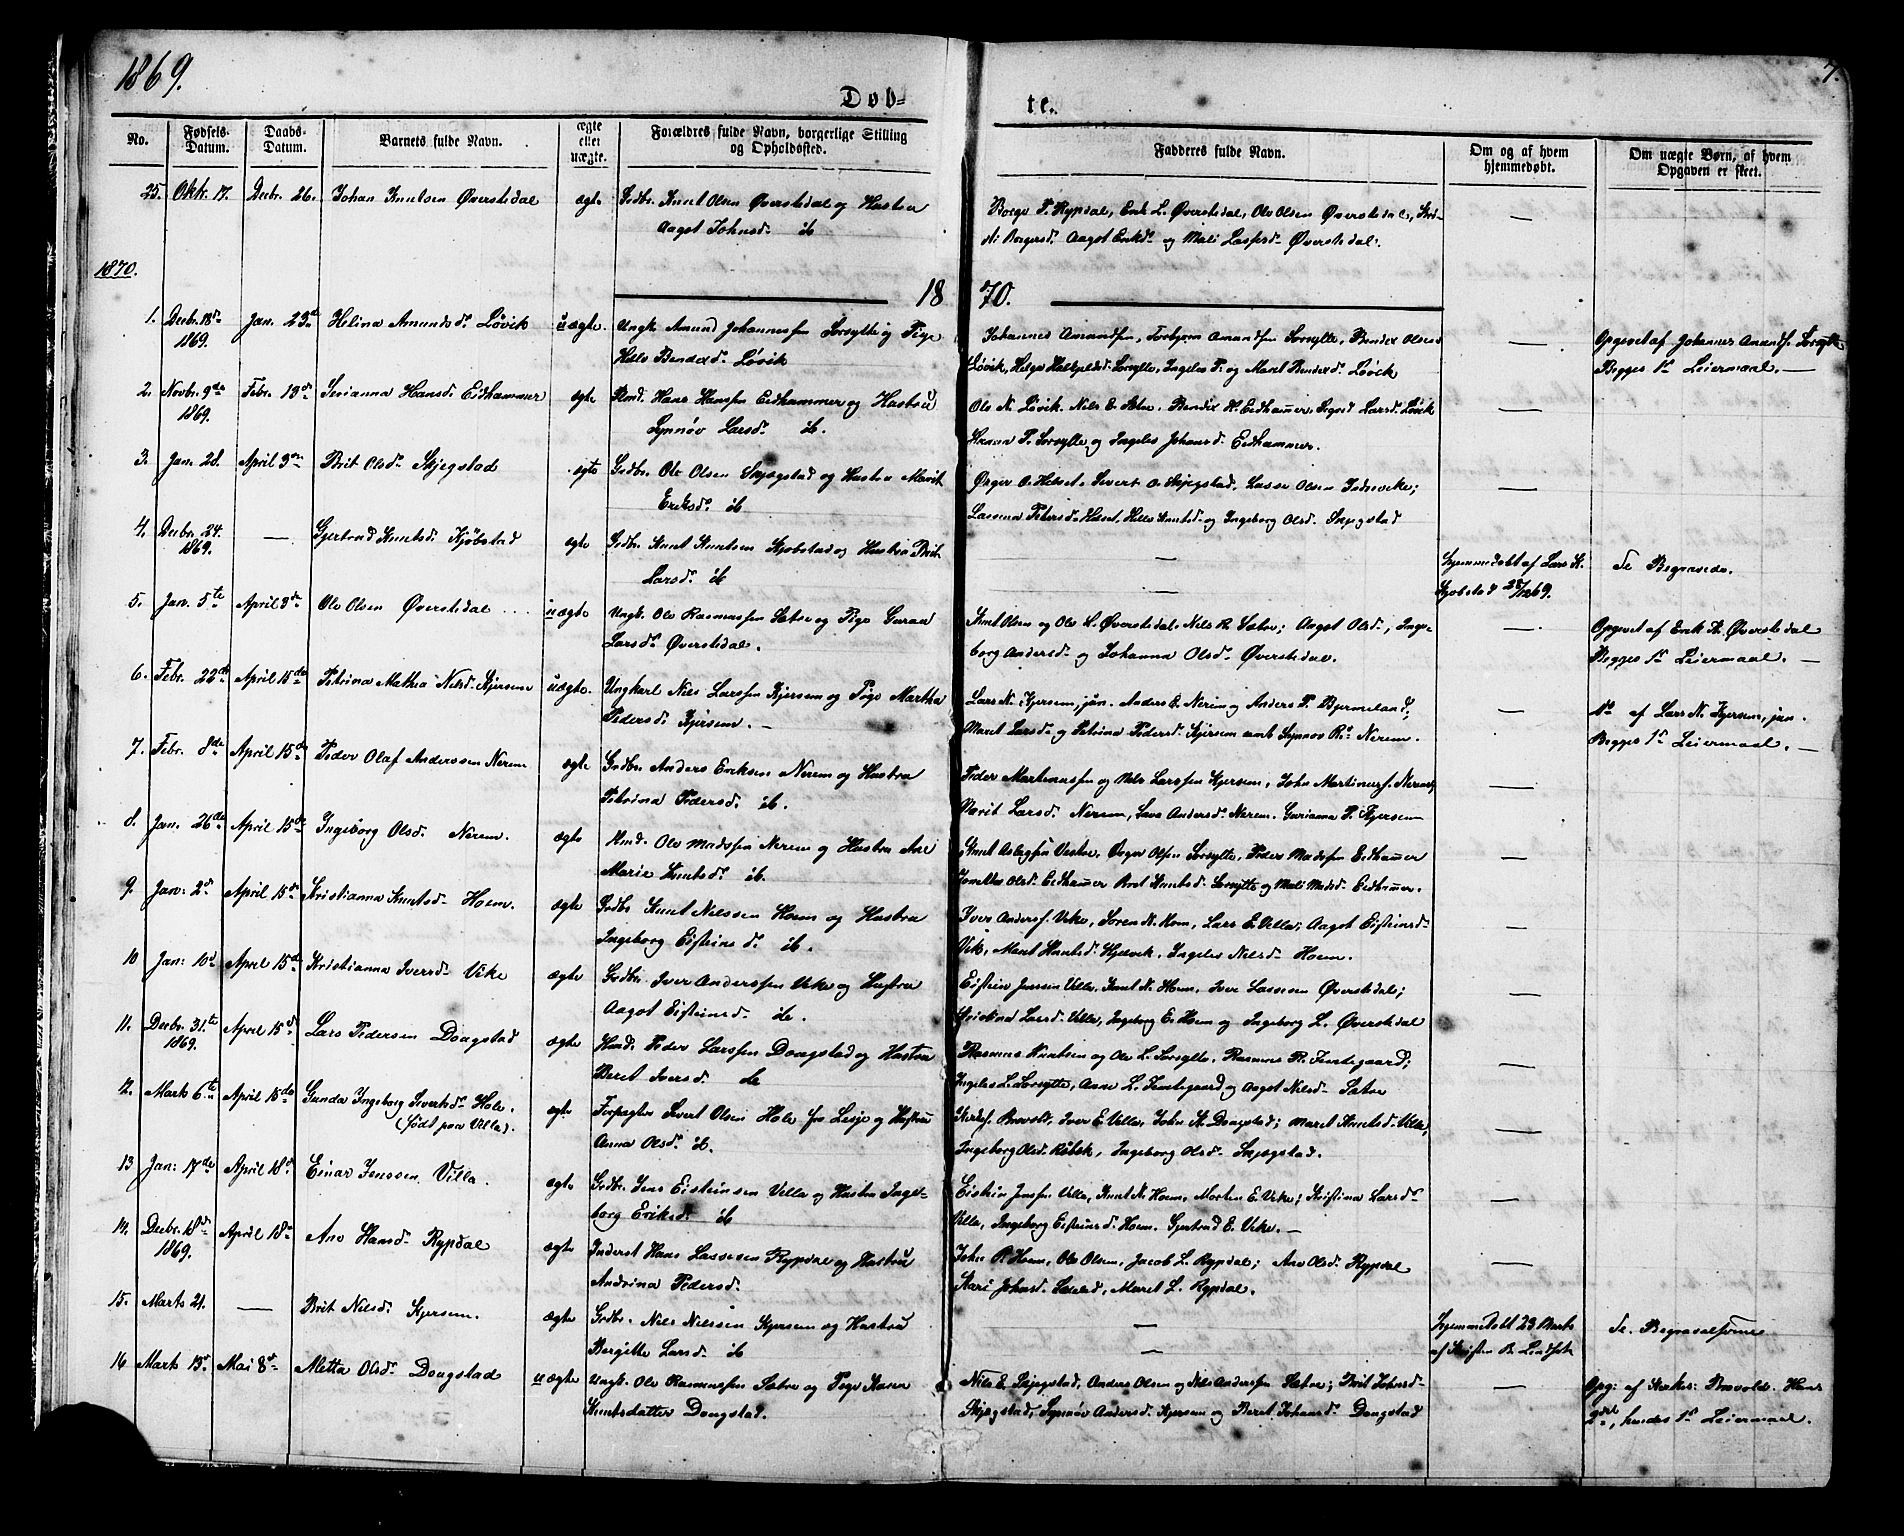 1869.
7.
Døb-
te.
No.
Fødsels-
Datum.
Daabs-
Datum.
Barnets fulde Navn.
ægte
eller
uægte.
Forældres fulde Navn, borgerlige Stilling
og Opholdssted.
Fadderes fulde Navn.
Om og af hvem
hjemmedøbt.
Om uægte Børn, af hvem
Opgaven er skeet.
25. Oktr. 17. Decbr. 26. Johan Knutsen Øverstedal ægte Grdbr. Knut Olsen Øverstedal og Hustru
Aagot Johnsd. ib.
Borge P. Rypdal, Erik L. Øverstedal, Ole Olsen Øverstedal, Kris-
ti Borgersd. Aagot Eriksd. og Mali Lassesd. Øverstedal.
1870.
1870.
1. Decbr. 18de Jan. 23de Helina Amundsd. Løvik uægte. Ungk. Amund Johannessen Sorsylte og Pige
1869.
Løvik
Johannes Amundsen, Torbjørn Amundsen Sorsylte, Bendix Olsen
Løvik, Helga Sorsylte, Ingeleb T. og Maret Bendixd. Løvik
Opgivet af Johannes Amundsen Sorsylte
Begges 1ste Leiermaal. —
2. Novbr. 9de Febr. 13de Serianna Hansd. Eidhammer ægte Hans Hansen Eidhammer og Hustru
1869.
Synnøv Larsd. ib.
Ole N. Løvik, Nils Bendix H. Eidhammer, Larsd. Løvik
Hanna P. Sorsylte og Ingeleb Johansd. Eidhammer.
3. Jan. 28. April 3die Brit Olsd. Skjegstad ægte Grdbr. Ole Olsen Skjegstad og Hustru Marit
Eriksd. ib
Sivert O. Skjegstad, Lasse Olsen
Ingeborg Olsd. Skjegstad
4. Decbr. 24. — Gjertrud Knutsd. Kjøbstad ægte Grdbr. Knut Knutsen Kjøbstad og Hustru Brit
1869.
Larsd. ib
—
Hjemmedøbt af Lars K.
Kjøbstad 28/12 69.
Se Begravede.
5. Jan. 5te April 3die Ole Olsen Øverstedal uægte Ungk. Ole Rasmussen Sætre og Pige Guran
Larsd. Øverstedal.
Knut Olsen og Ole L. Øverstedal, Nils R. Sætre; Aagot Olsd., Inge-
borg Andersd. og Johanna Olsd. Øverstedal.
Opgivet af Erik K. Øverstedal
Begges 1ste Leiermaal. —
6. Febr. 22de April 15de Petrina Mathea Nilsd. Kjersem uægte. Ungkarl Nils Larssen Kjersem og Pige Martha
Pedersd. Kjersem. —
Lars N. Kjersem, jun. Anders E. Nerem og Anders P. Bjermeland;
Maret Larsd. og Petrina Pedersd. Kjersem samt Synnøv Nerem.
af Lars N. Kjersem, jun.
Begges 1ste Leiermaal. —
7. Febr. 8de April 15de Peder Olaf Anderssen Nerem ægte Grdbr. Anders Eriksen Nerem og Hustru
Petrina Pedersd. ib.
Peder Martinussen og Nils Larssen Kjersem, John Martinuss. Nerem,
Marit Larsd. Nerem, Andersd. Nerem. Gurianna P. Kjersem
8. Jan. 26de April 15de Ingeborg Olsd. Nerem. ægte Hmd. Ole Madssen Nerem og Hustru Ane
Marie Knutsd. ib.
Knut Aslagsen Vestre, Olsen Sorsylte, Peder Madssen Eidhammer
Olsd. Eidhammer Brit Knutsd. Sorsylte og Mali Madsd. Eidhammer.
9. Jan: 2de April 15de Kristianna Knutsd. Hoem. ægte Grdbr. Knut Nielssen Hoem og Hustru
Ingeborg Eisteinsd. ib.
Iver Anderss. Vike, Søren N. Hoem, Lars E. Villa; Aagot Eisteinsd.
Vik, Maret Knutsd. Hjelvik, Ingeleb Nielsd. Hoem.
10 Jan: 10de April 15de Kristianna Iversd. Vike ægte Grdbr. Iver Anderssen Vike og Hustru
Aagot Eisteinsd. ib.
Eistein Jenssen Villa, Knut N. Hoem, Iver Lassesen Øverstedal;
Kristina Larsd. Villa, Ingeborg E. Hoem og Ingeborg L. Øverstedal
11. Decbr. 31te April 15de Lars Pedersen Dongstad ægte Hmd. Peder Larssen Dongstad og Hustru
1869.
Beret Iversd. ib
Rasmus Knutsen og Ole L. Sorsylte, Rasmus R.
Ingeleb L. Sorsylte, Anne L. og Aagot Nilsd. Sætre
12. Marts 6te April 15de Gunda Ingeborg Sivertsd. Hole. ægte Forpagter Sivert Olsen Hole fra Lesje og Hustru
(født paa Villa).
Anna Olsd. ib.
Brovold, Iver E. Villa, John K. Dongstad; Maret Knutsd. Villa,
Ingeborg Olsd. Ingeborg Olsd. Skjegstad.
13 Jan: 17de April 18de Einar Jenssen Villa. ægte Grdbr. Jens Eisteinsen Villa og Hustru Inge-
borg Eriksd. ib
Eistein Jenssen Villa, Knut N. Hoem, Morten E. Vike; Kristina Larsd.
Villa, Ingeborg Eisteinsd. Hoem. Gjertrud E. Vike. —
14. Decbr. 18de April 18de Ane Hansd. Rypdal ægte Inderst Hans Lassesen Rypdal og Hustru
1869.
Andrina Pedersd.
John P. Hoem, Ole Olsen, Jacob L. Rypdal; Ane Olsd. Rypdal
Kari Johnsd. Maret L. Rypdal.
15. Marts 21. — Brit Nilsd. Kjersem. ægte Grdbr. Niels Nielssen Kjersem og Hustru
Bergitte Larsd. ib
—
Hjemmedøbt 23 Marts
af Kristen R.
Se Begravelserne
16. Marts 13de Mai 8de Metta Olsd. Dongstad uægte Ungk. Ole Rasmussen Sætre og Pige Karen
Knutsdatter Dongstad.
Nils E. Skjegstad, Anders Olsen og Nils Anderssen Sætre; Brit Johnsd.
Skjegstad, Synnøv Andersd. Kjersem og Beret Johansd. Dongstad
Opg: af Kirkes: Brovold. Hans
2det, hendes 1ste Leiermaal.